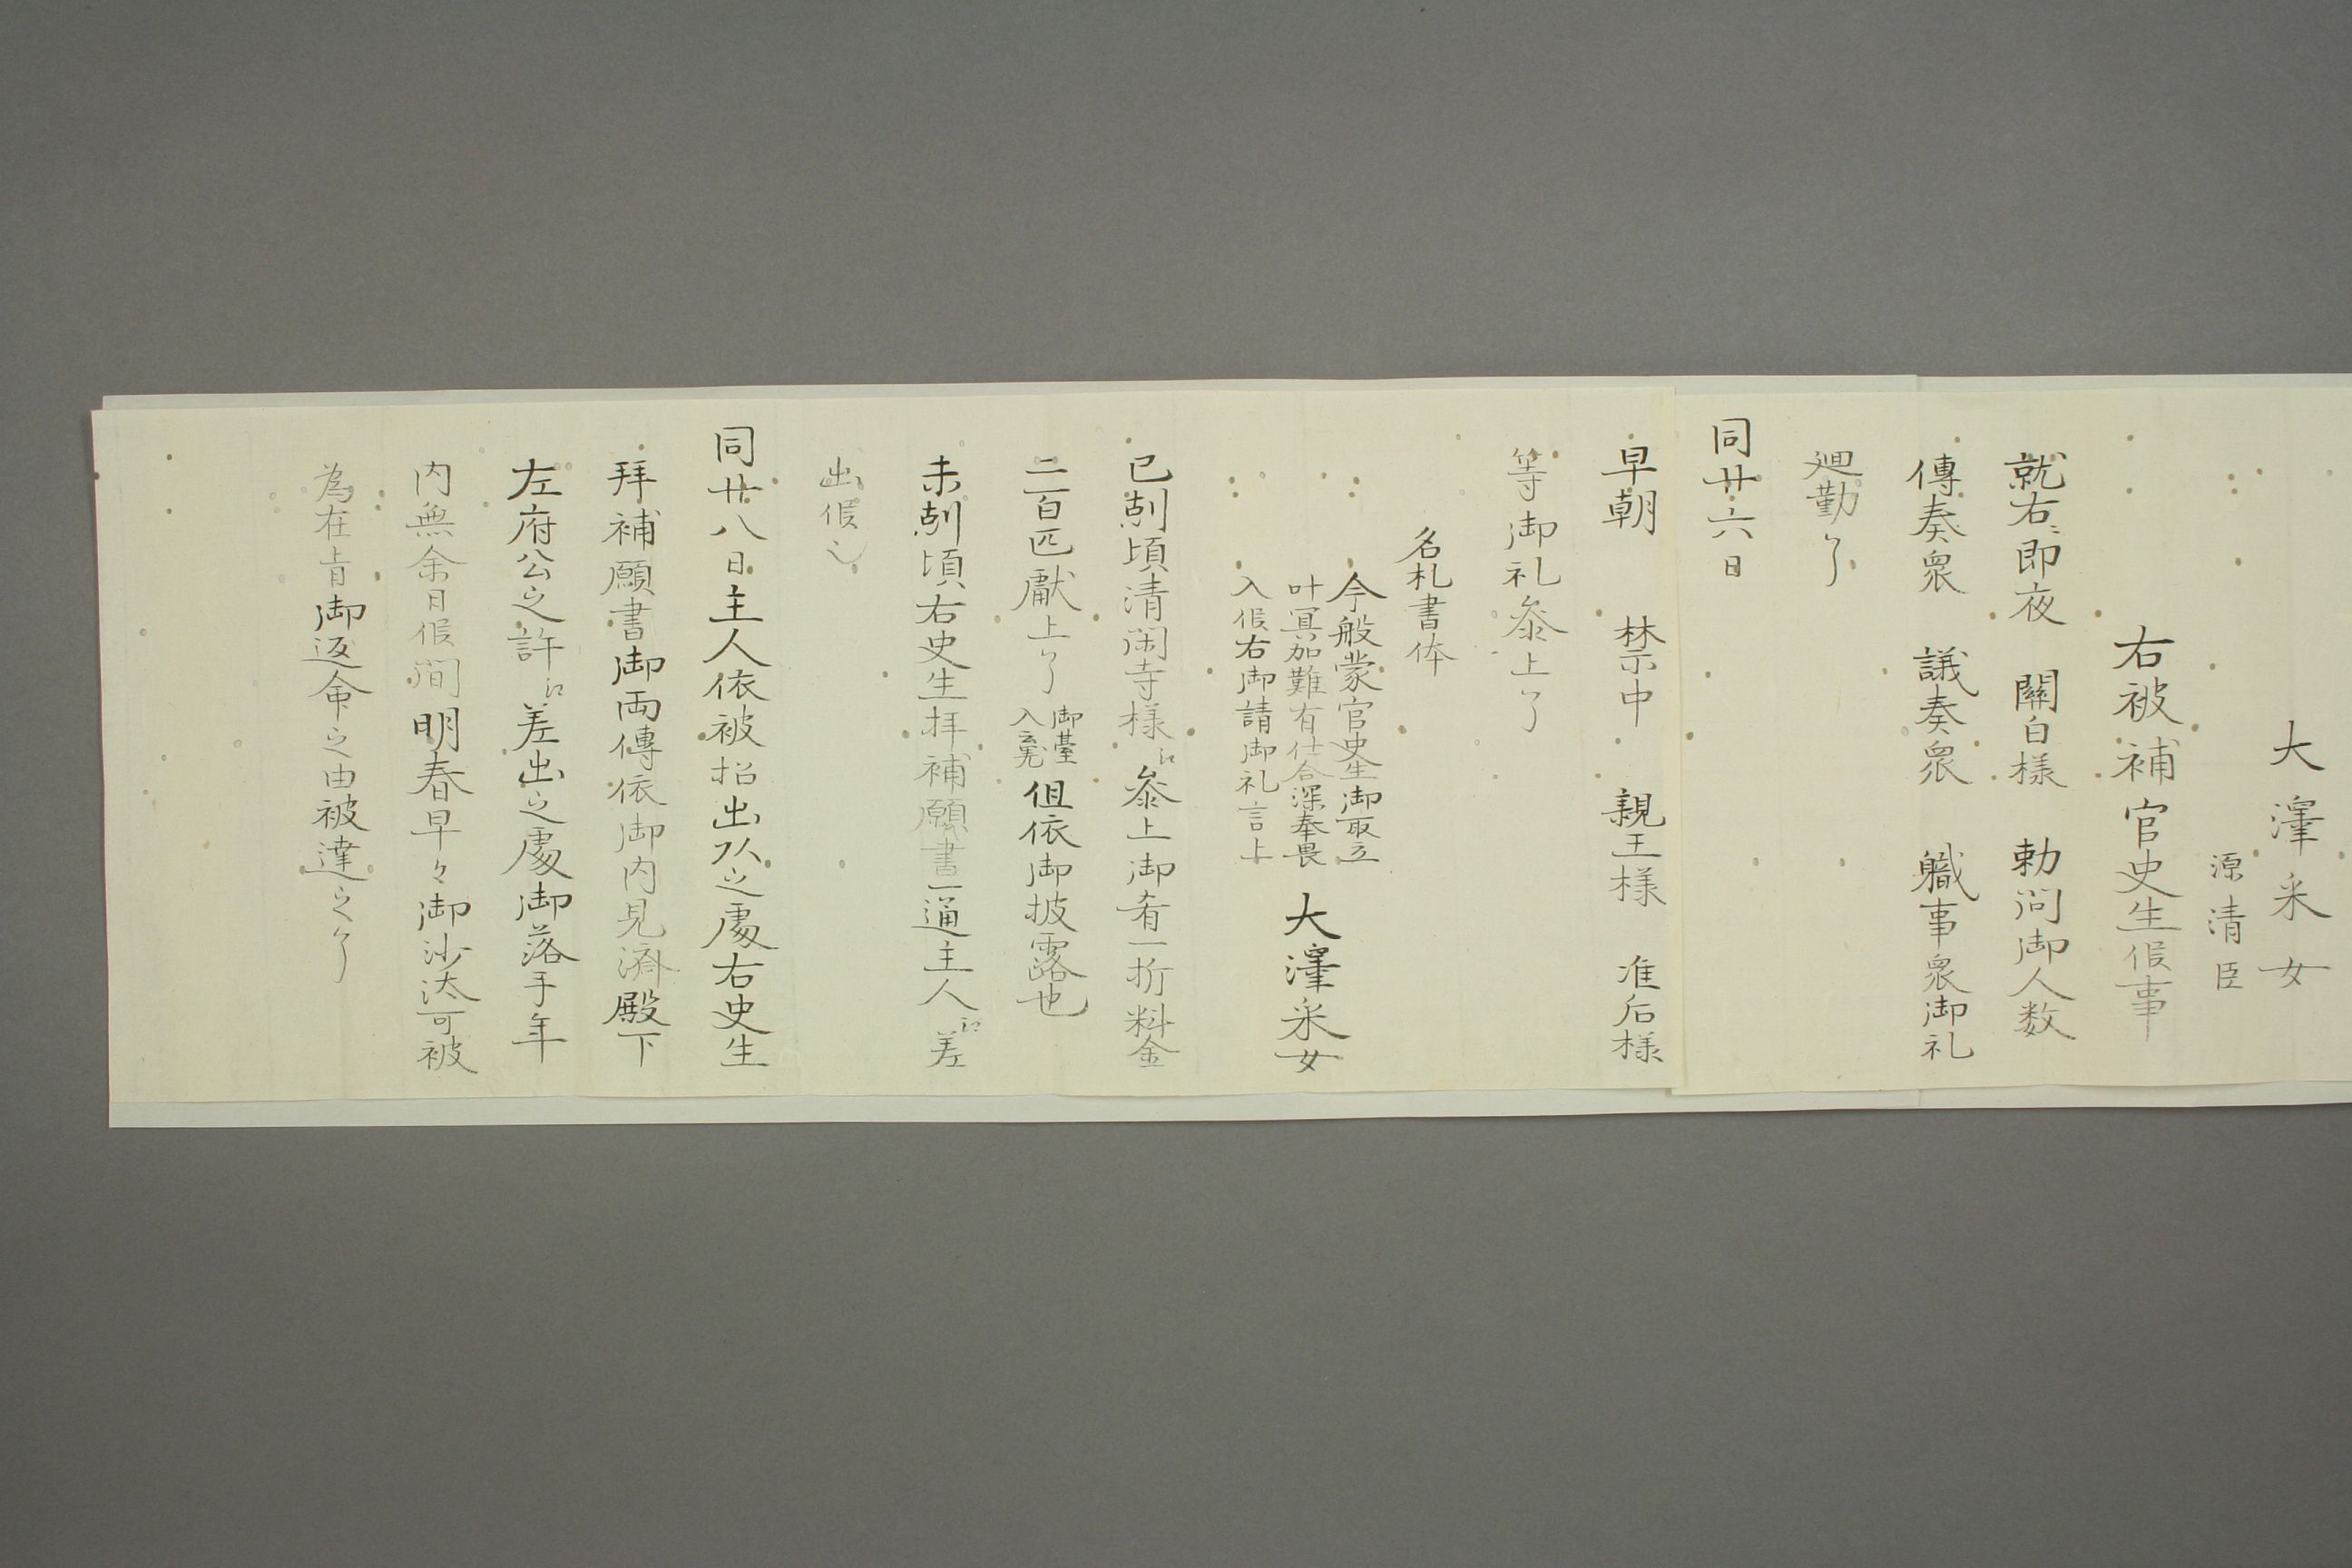 大澤采女
源清臣
右被補官史生候事
就右ニ即夜　關白様　勅問御人数
傳奏衆　議奏衆　職事衆御礼
廻勤了
同廿六日
早朝　禁中　親王様　准后様
等御礼参上了
名札書体
今般蒙官史生御取立
叶冥加難有仕合深奉畏
入候右御請御礼言上
大澤采女
巳剋頃清閑寺様江参上御肴一折料金
二百匹献上了
御臺
入
但依御披露也
未剋頃右史生拝補願書一通主人江差
出候之
同廿八日主人依被招出以之處右史生
拜補願書御両傳依御内見済殿下
左府公之許江差出之處御落手年
内無余日候間明春早々御沙汰可被
為在旨御返命之由被達之了